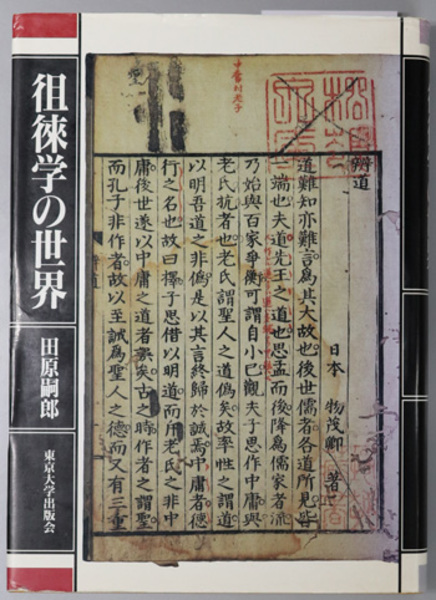 徂徠学の世界
田原嗣郎
東京大学出版会
辨道
日本 物茂卿 著
道難知亦難言爲其大故也後世儒者各道所見皆
一端也夫道先王之道也思孟而後降爲儒家者流
乃始與百家爭衡可謂自小已觀夫子思作中庸與
老氏抗者也老氏謂聖人之道僞矣故率性之謂道
以明吾道之非僞是以其言終歸於誠焉中庸者德
行之名也故曰擇子思借以明道而斥老氏之非中
庸後世遂以中庸之道者誤矣古之時作者之謂聖
而孔子非作者故以至誠爲聖人之德而又有三重